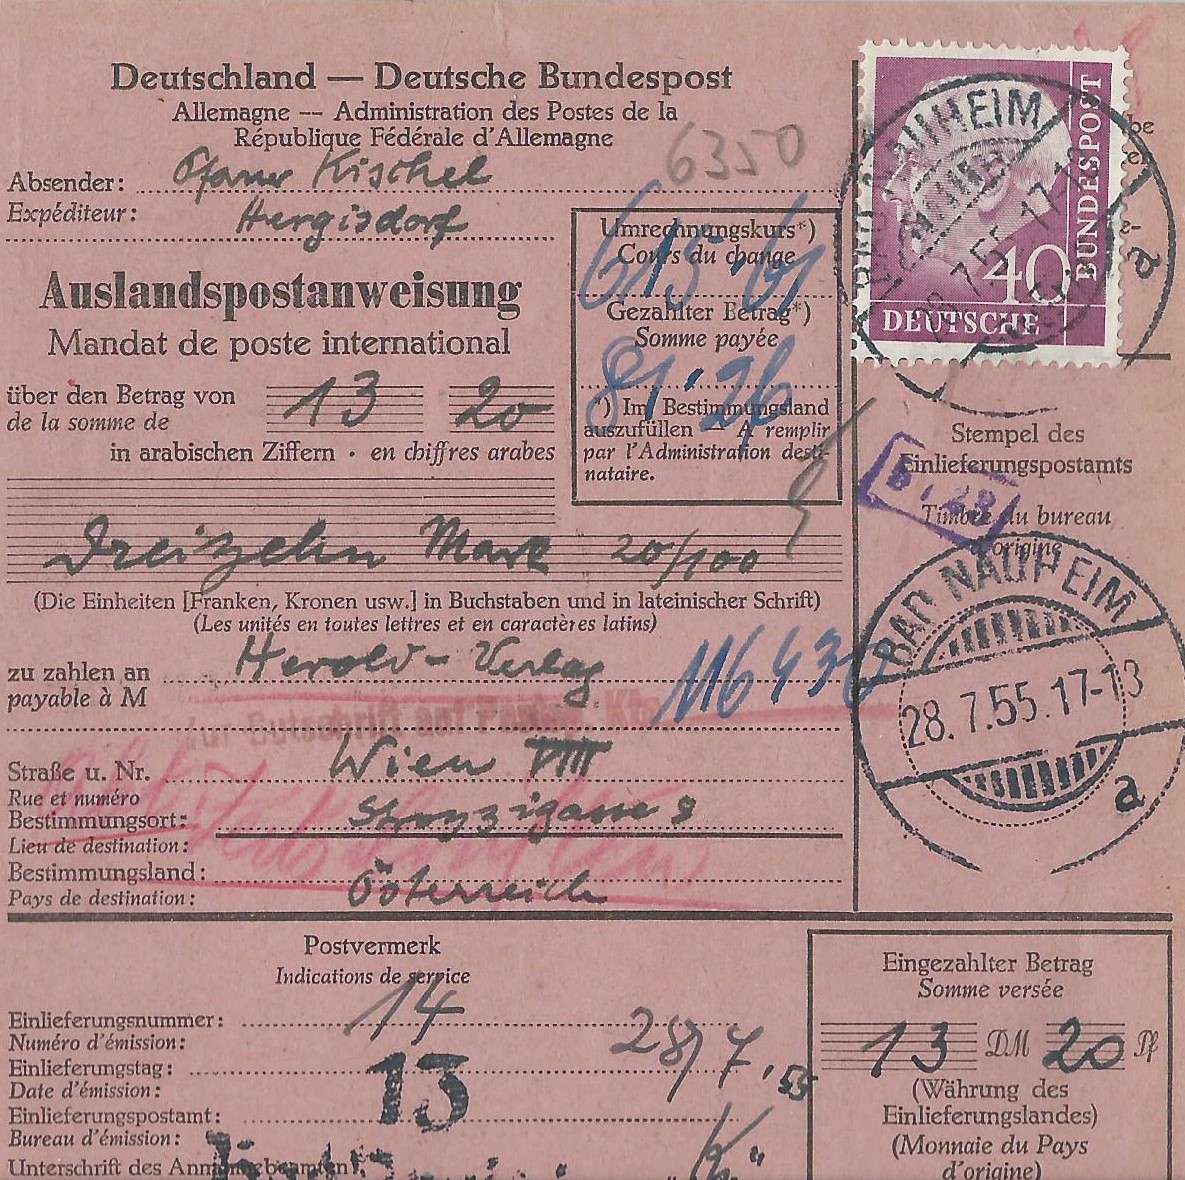 Deutschland — Deutsche Bundespost
Allemagne — Administration des Postes de la
République Fédérale d'Allemagne
6350
Absender: Pfarrer Kischel
Expéditeur: Hergisdorf
Auslandspostanweisung
Mandat de poste international
über den Betrag von 13 20
de la somme de
in arabischen Ziffern · en chiffres arabes
Umrechnungskurs*)
Cours du change
615·61
Gezahlter Betrag*)
Somme payée
81·26
*) Im Bestimmungsland
auszufüllen — A remplir
par l'Administration desti-
nataire.
BUNDESPOST
40
DEUTSCHE
BAD NAUHEIM
28.7.55.17-18
a
Stempel des
Einlieferungspostamts
Timbre du bureau
d'origine
BAD NAUHEIM
28.7.55.17-18
a
Dreizehn Mark 20/100
(Die Einheiten [Franken, Kronen usw.] in Buchstaben und in lateinischer Schrift)
(Les unités en toutes lettres et en caractères latins)
zu zahlen an Herold-Verlag
payable à M
116430
zur Gutschrift auf Kto
Wien VIII
Straße u. Nr.
Rue et numéro
Bestimmungsort: Strozzigasse 8
Lieu de destination:
Bestimmungsland: Österreich
Pays de destination:
Postvermerk
Indications de service
Einlieferungsnummer: 14
Numéro d'émission:
Einlieferungstag: 28/7.55
Date d'émission: 13
Einlieferungspostamt:
Bureau d'émission:
Unterschrift des Annahmebeamten:
Eingezahlter Betrag
Somme versée
13 DM 20 Pf
(Währung des
Einlieferungslandes)
(Monnaie du Pays
d'origine)